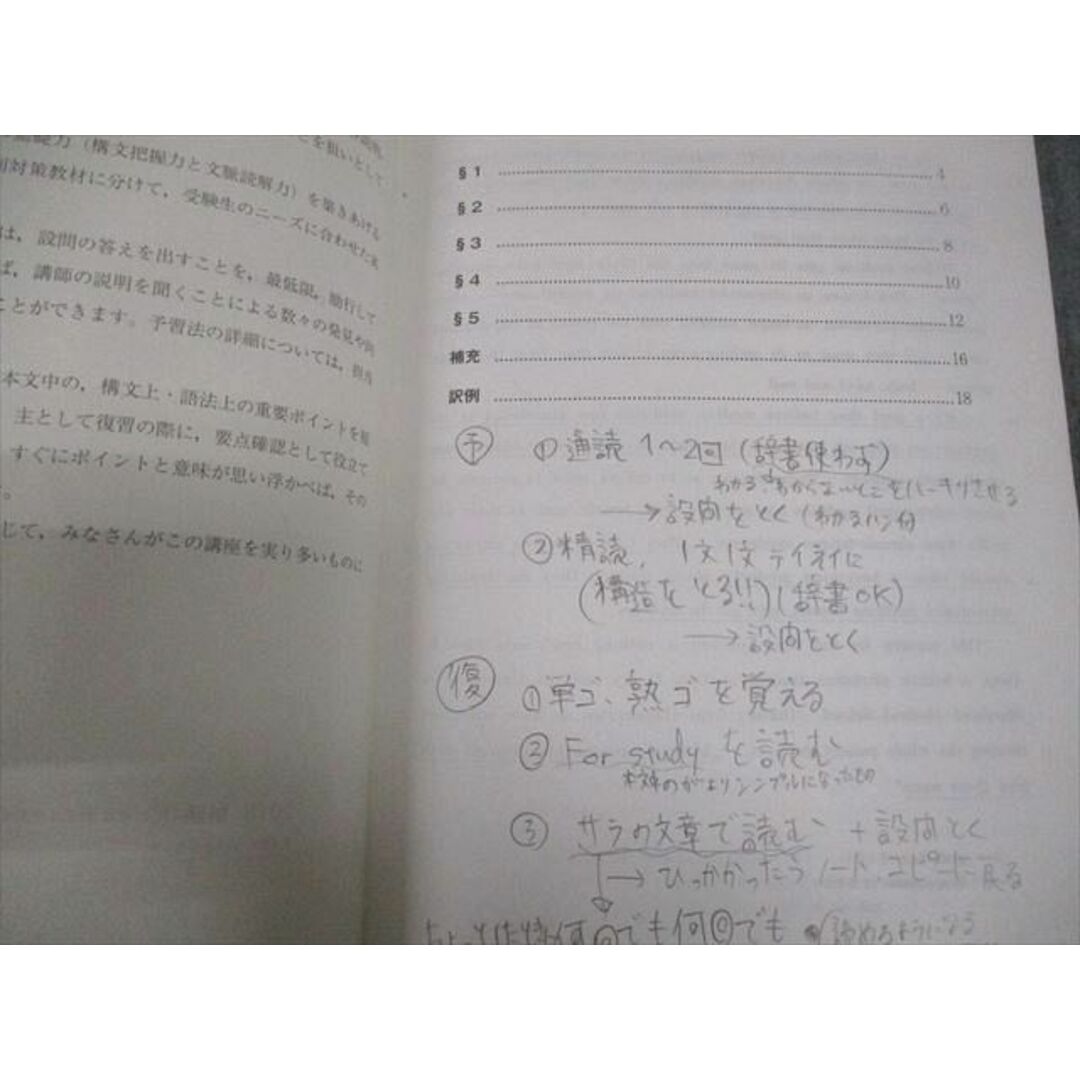 礎力（構文把握力と文脈読解力）を築きあげる
別対策教材に分けて，受験生のニーズに合わせた
は，設問の答えを出すことを，最低限，励行して
ば，講師の説明を聞くことによる数々の発見や
ことができます。予習法の詳細については，担当
本文中の，構文上・語法上の重要ポイントを
主として復習の際に，要点確認として役立て
すぐにポイントと意味が思い浮かべば，その
。
じて，みなさんがこの講座を実り多いものに
§1 4
§2 6
§3 8
§4 10
§5 12
補充 16
訳例 18
予 ①通読 1〜2回（辞書使わず）
わかる、わからないとこをハッキリさせる
→設問をとく（わかるハンイ
②精読、1文1文テイネイに
（構造をとる!!）（辞書OK）
→設問をとく
復 ①単ゴ、熟ゴを覚える
②For studyを読む
シンプルになったもの
③サラの文章で読む＋設問とく
→ひっかかったらノート、コピーに戻る
でも何回でも 読めるようになる